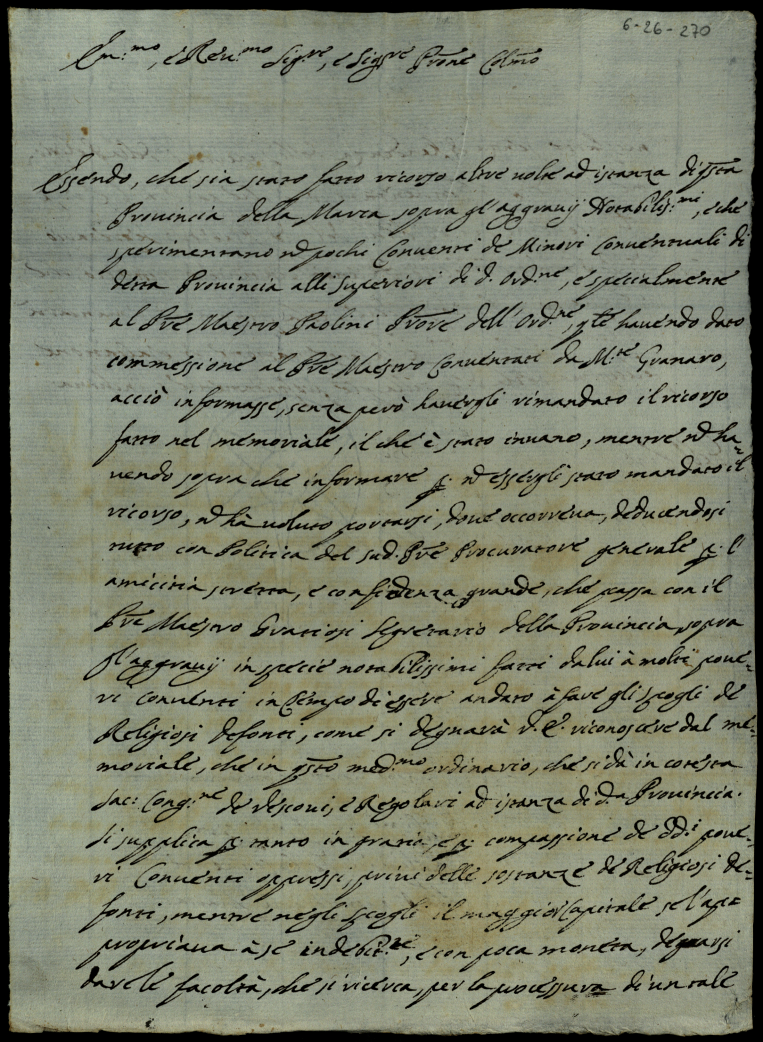 6-26-270
Em:mo, e Reu:mo Sig:re, e Sig:re Prone Colmo
Essendo, che sia stato fatto ricorso altre uolte ad istanza di qsta
Prouincia della Marca sopra gl'aggrauij Notabiliss:mi, e che
sperimentano nō pochi Conuenti de Minori Conuentuali di
detta Prouincia alli Superiori di d. Ord:ne, e specialmente
al Pre Maestro Paolini Prore dell'Ord:ne, qle hauendo dato
commessione al Pre Maestro Conuentati da M:te Granaro,
acciò informasse, senza però hauergli rimandato il ricorso
fatto nel memoriale, il che è stato inuano, mentre nō ha=
uendo sopra che informare p. nō essergli stato mandato il
ricorso, nō hà uoluto portarsi, doue occorreua, deducendosi
tutto con Politica del sud. Pre Procuratore generale p. l'
amicitia stretta, e confidenza grande, che passa con il
Pre Maestro Gratiosi Segretario della Prouincia, sopra
gl'aggrauij in specie notabilissimi fatti da lui à molti poue=
ri conuenti in tempo di essere andato à fare gli spogli de
Religiosi defonti, come si degnarà V. E. riconoscere dal me=
moriale, che in qsto med:mo ordinario, che si dà in cotesta
Sac: Cong:ne de Vescoui, e Regolari ad istanza di d.a Prouincia.
Si supplica p. tanto in gratia, e p. compassione de dd.i poue=
ri Conuenti oppressi, priui delle sostanze de Religiosi de=
fonti, mentre negli spogli il maggior Capitale se l'ap=
propriaua à se indebit:te, e con poca moneta, degnarsi
darcle facoltà, che si ricerca, per la processura d'un tale